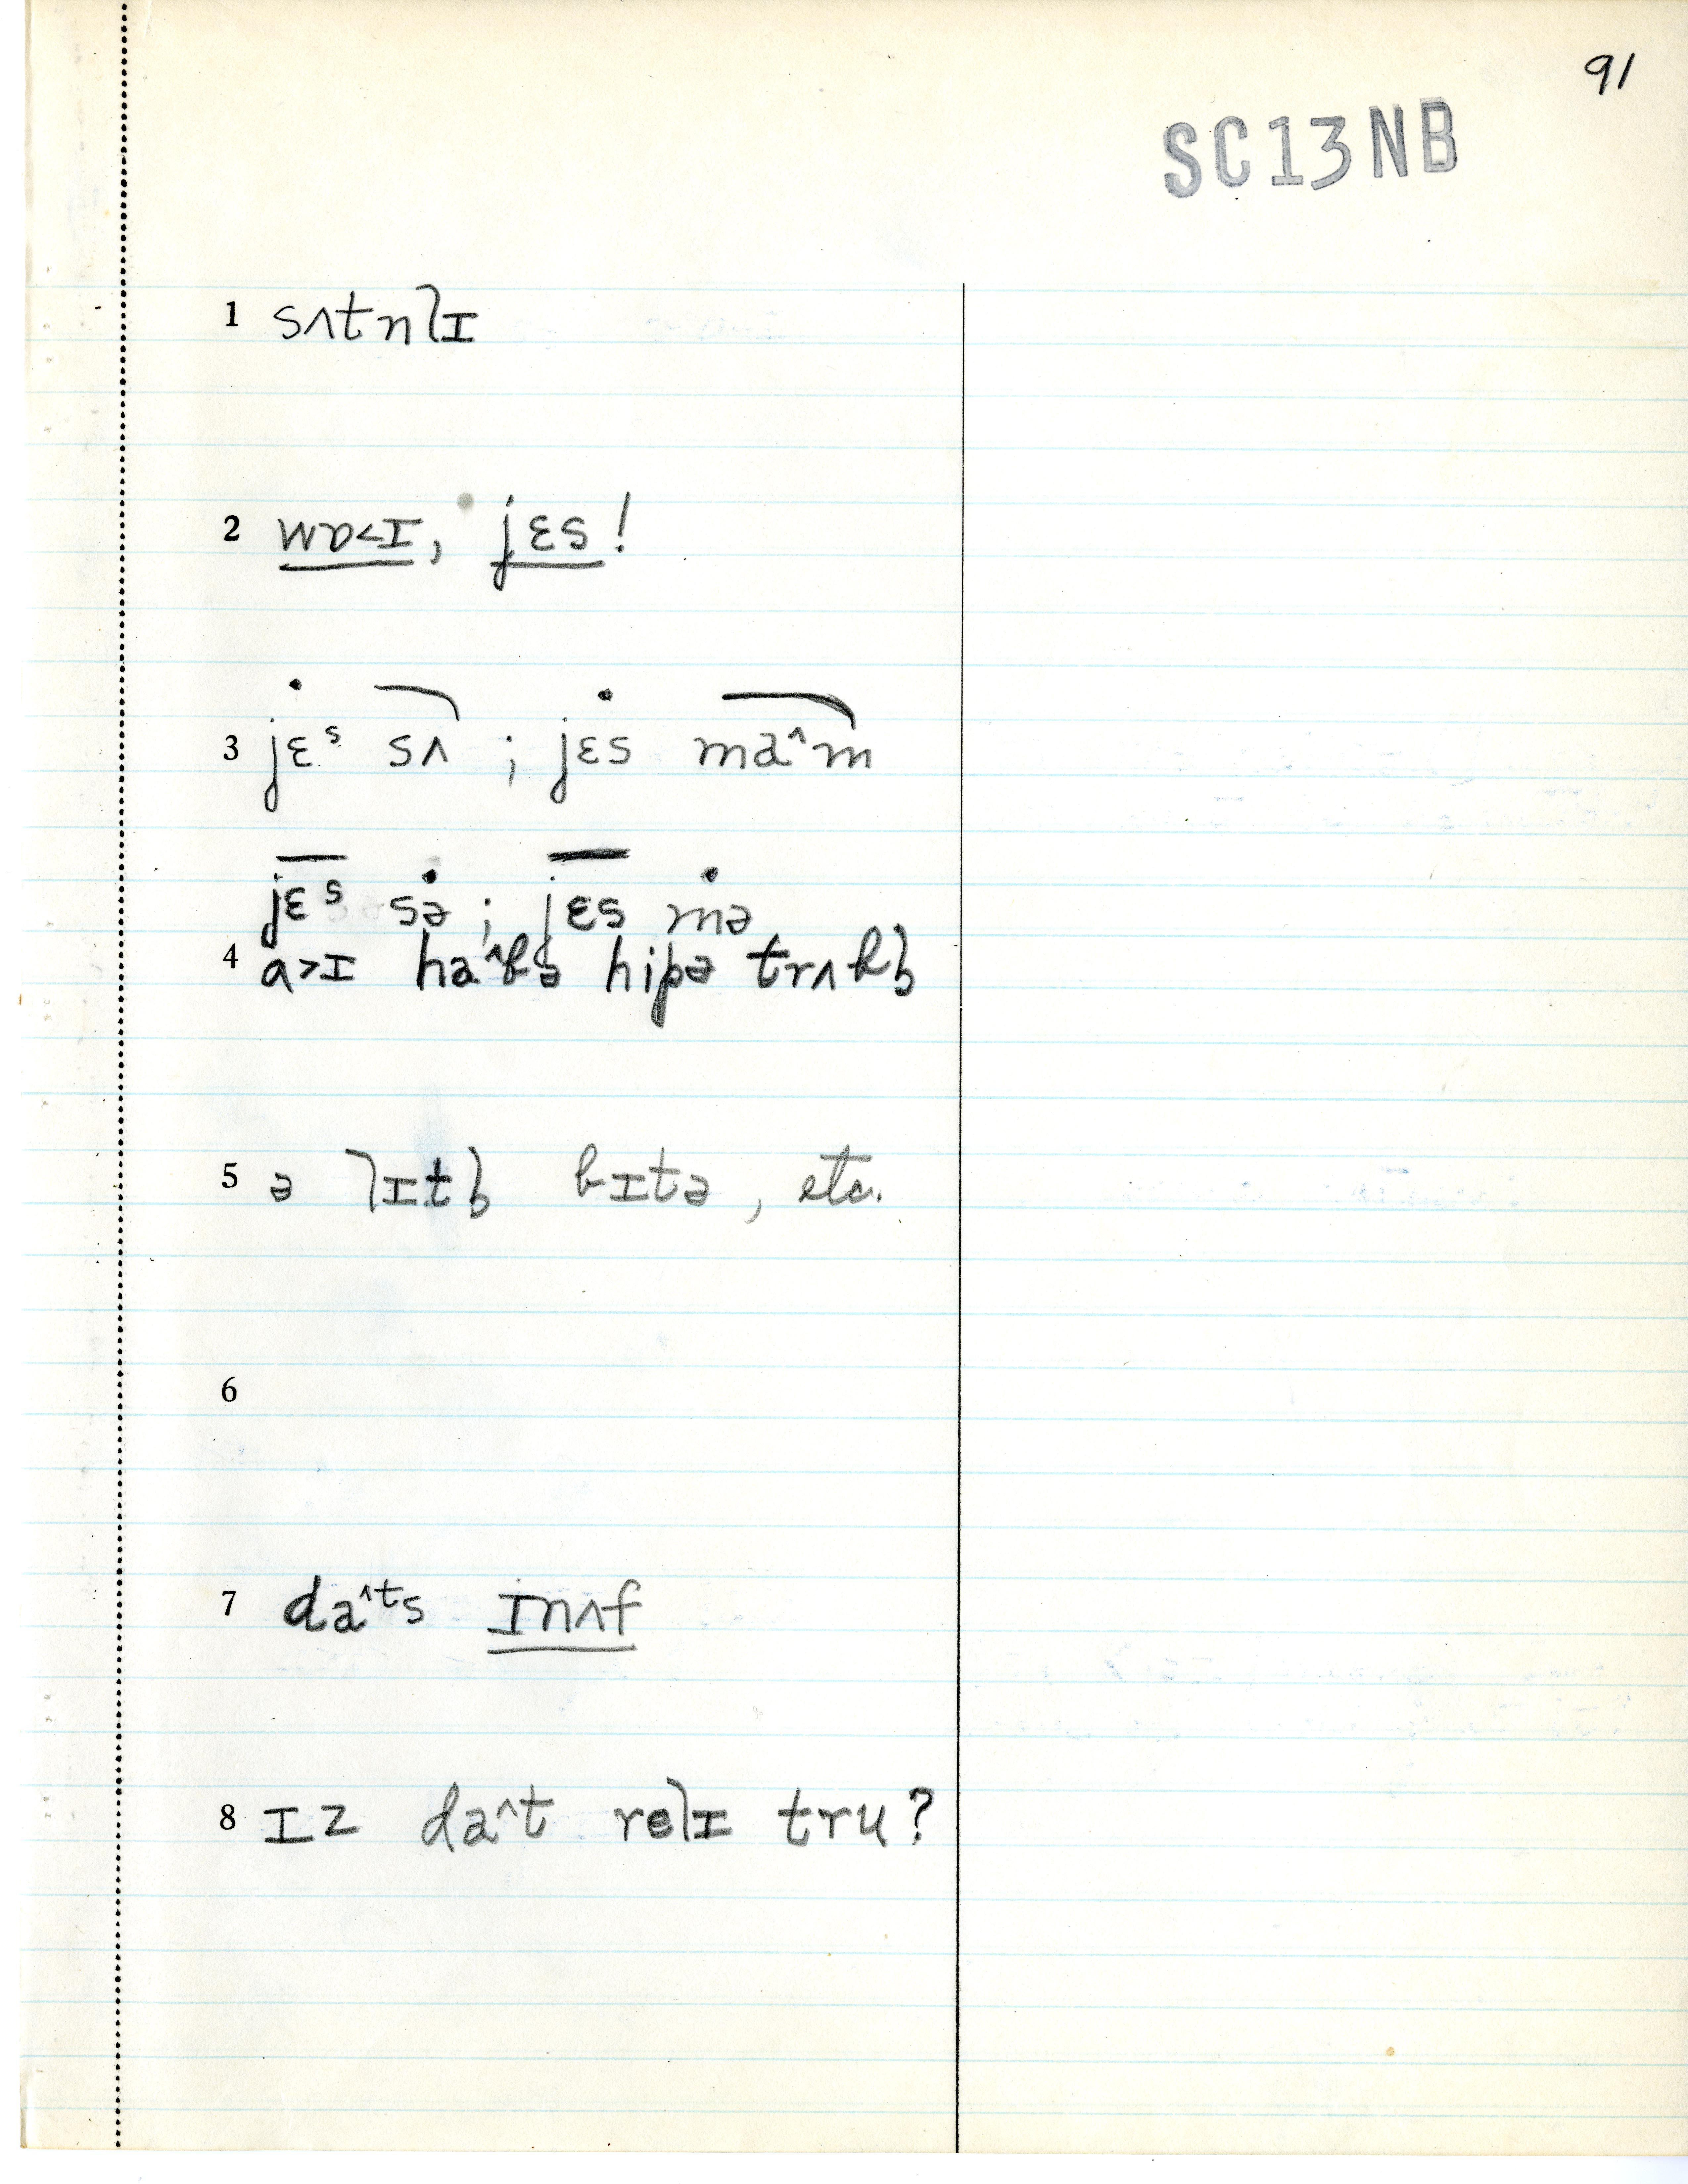 91
SC13NB
1 sʌtnlɪ
2 wɒ<ɪ, jɛs!
3 jɛˢ sʌ ; jɛs ma^m
jɛˢ sə ; jɛs mə
4 a>ɪ ha^bə hipə trʌbl̩
5 ə lɪtl̩ bɪtə, etc.
6
7 da^ts ɪnʌf
8 ɪz da^t relɪ tru?